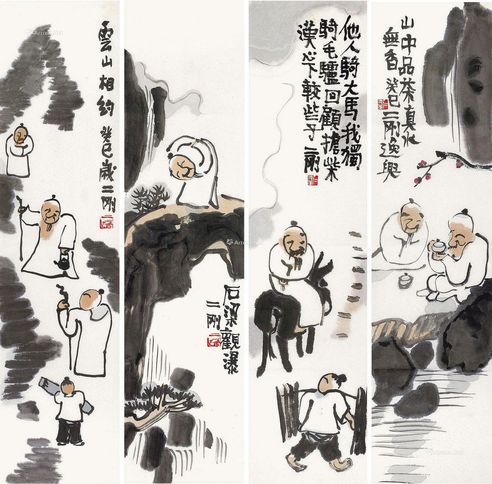 山中品茶真水
無香 癸巳二剛逸興
他人騎大馬我獨
騎毛驢回顧擔柴
漢心下較些子 二剛
石梁觀瀑
二剛
雲山相約 癸巳歲二剛